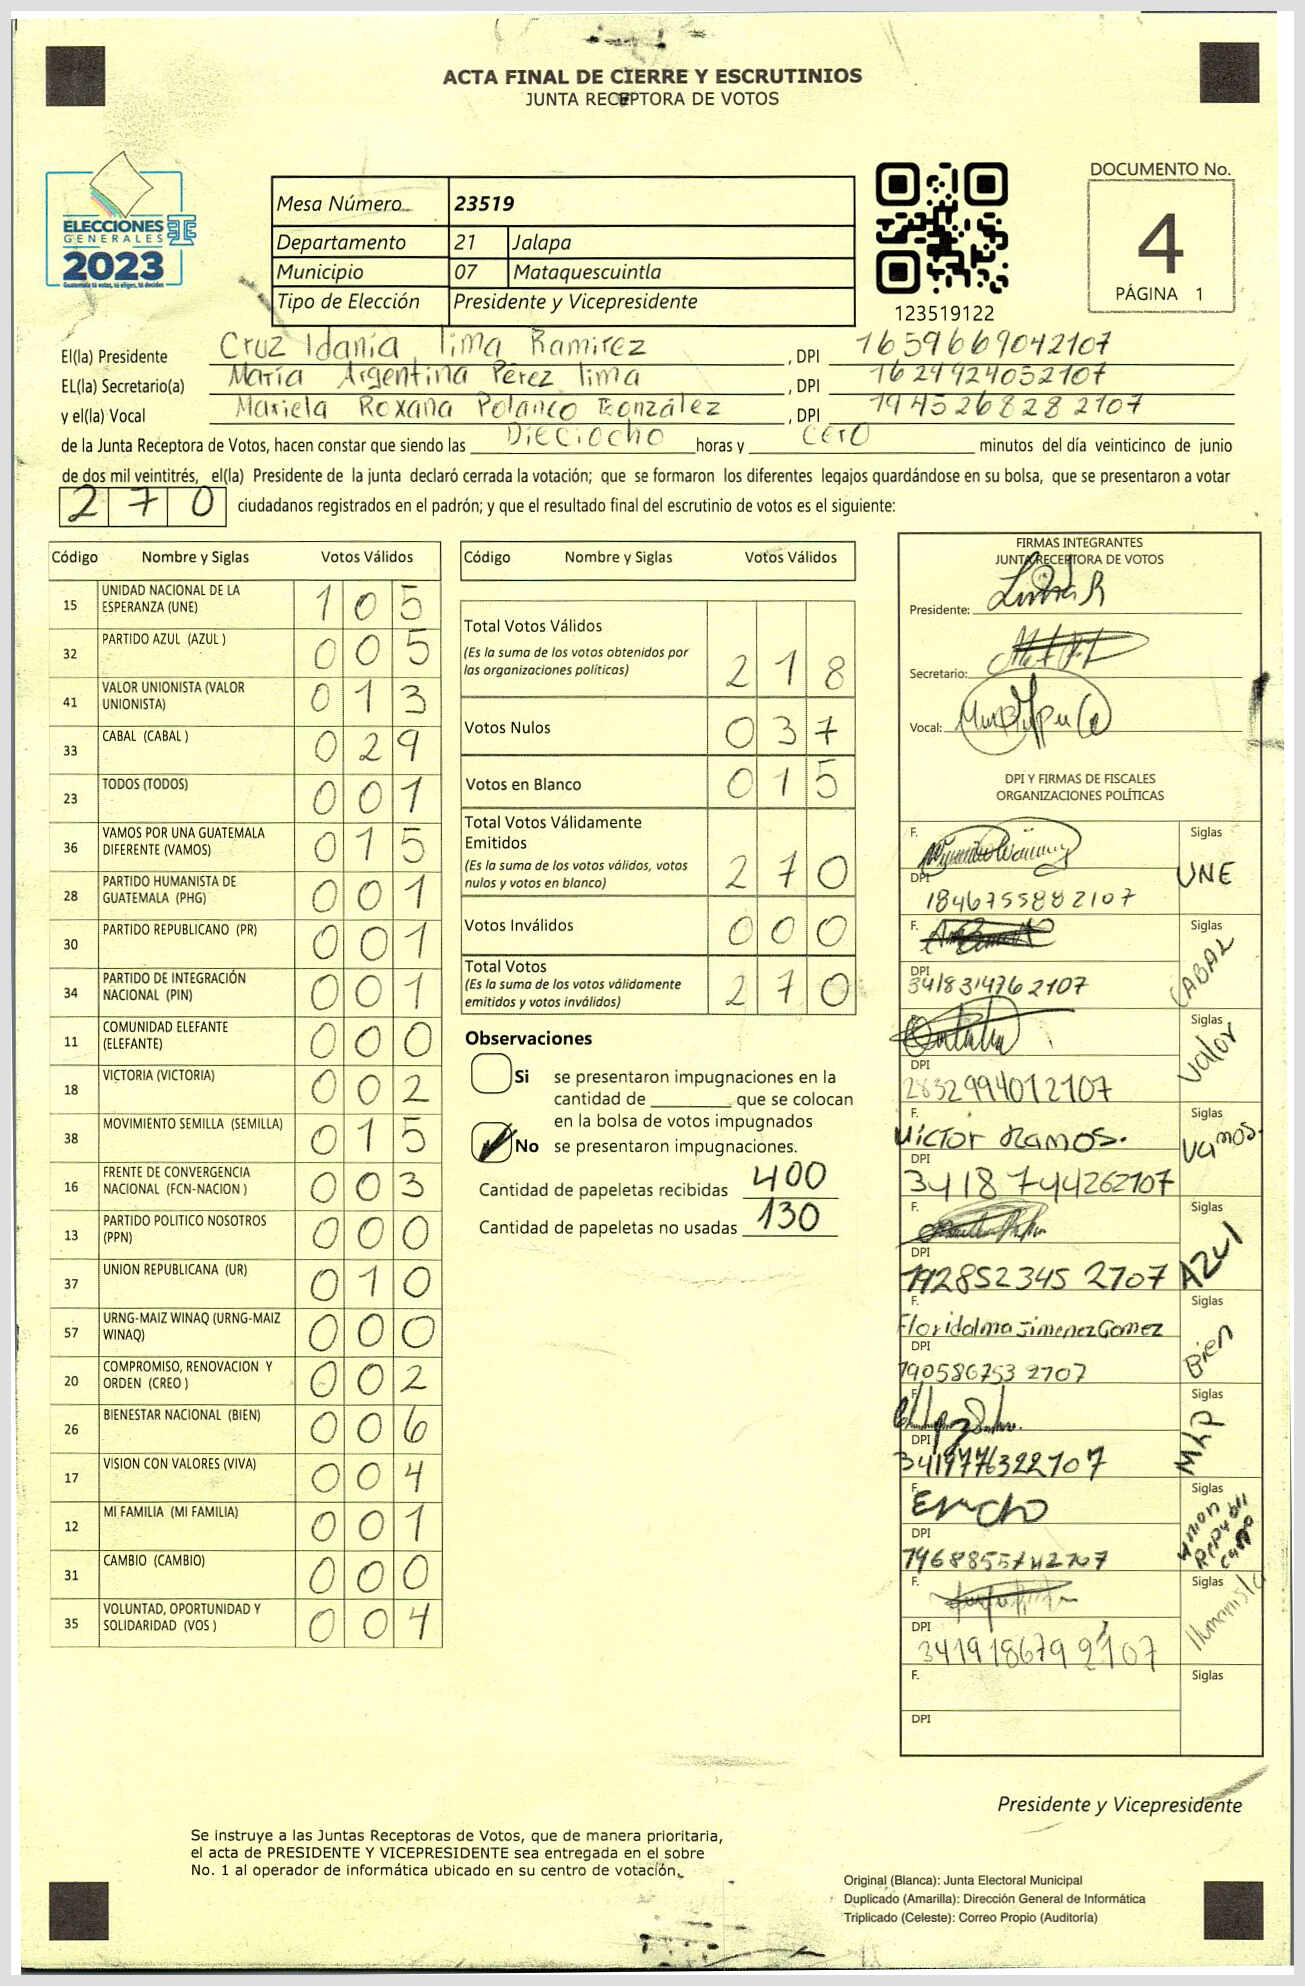 ACTA FINAL DE CIERRE Y ESCRUTINIOS
JUNTA RECEPTORA DE VOTOS
ELECCIONES
GENERALES
2023
Guatemala tú votas, tú eliges, tú decides
Mesa Número 23519
Departamento 21 Jalapa
Municipio 07 Mataquescuintla
Tipo de Elección Presidente y Vicepresidente
123519122
DOCUMENTO No.
4
PÁGINA 1
El(la) Presidente Cruz Idania lima Ramirez, DPI 1659669042107
EL(la) Secretario(a) María Argentina Pérez lima, DPI 1624924052107
y el(la) Vocal Mariela Roxana Polanco González, DPI 1945268282107
de la Junta Receptora de Votos, hacen constar que siendo las Dieciocho horas y cero minutos del día veinticinco de junio
de dos mil veintitrés, el(la) Presidente de la junta declaró cerrada la votación; que se formaron los diferentes legajos guardándose en su bolsa, que se presentaron a votar
270 ciudadanos registrados en el padrón; y que el resultado final del escrutinio de votos es el siguiente:
Código Nombre y Siglas Votos Válidos
15 UNIDAD NACIONAL DE LA ESPERANZA (UNE) 105
32 PARTIDO AZUL (AZUL ) 005
41 VALOR UNIONISTA (VALOR UNIONISTA) 013
33 CABAL (CABAL ) 029
23 TODOS (TODOS) 001
36 VAMOS POR UNA GUATEMALA DIFERENTE (VAMOS) 015
28 PARTIDO HUMANISTA DE GUATEMALA (PHG) 001
30 PARTIDO REPUBLICANO (PR) 001
34 PARTIDO DE INTEGRACIÓN NACIONAL (PIN) 001
11 COMUNIDAD ELEFANTE (ELEFANTE) 000
18 VICTORIA (VICTORIA) 002
38 MOVIMIENTO SEMILLA (SEMILLA) 015
16 FRENTE DE CONVERGENCIA NACIONAL (FCN-NACION ) 003
13 PARTIDO POLITICO NOSOTROS (PPN) 000
37 UNION REPUBLICANA (UR) 010
57 URNG-MAIZ WINAQ (URNG-MAIZ WINAQ) 000
20 COMPROMISO, RENOVACION Y ORDEN (CREO ) 002
26 BIENESTAR NACIONAL (BIEN) 006
17 VISION CON VALORES (VIVA) 004
12 MI FAMILIA (MI FAMILIA) 001
31 CAMBIO (CAMBIO) 000
35 VOLUNTAD, OPORTUNIDAD Y SOLIDARIDAD (VOS ) 004
Código Nombre y Siglas Votos Válidos
Total Votos Válidos
(Es la suma de los votos obtenidos por
las organizaciones políticas) 218
Votos Nulos 037
Votos en Blanco 015
Total Votos Válidamente
Emitidos
(Es la suma de los votos válidos, votos
nulos y votos en blanco) 270
Votos Inválidos 000
Total Votos
(Es la suma de los votos válidamente
emitidos y votos inválidos) 270
Observaciones
Si se presentaron impugnaciones en la
cantidad de ________ que se colocan
en la bolsa de votos impugnados
No se presentaron impugnaciones.
Cantidad de papeletas recibidas 400
Cantidad de papeletas no usadas 130
FIRMAS INTEGRANTES
JUNTA RECEPTORA DE VOTOS
Presidente:
Secretario:
Vocal:
DPI Y FIRMAS DE FISCALES
ORGANIZACIONES POLÍTICAS
F. Siglas
UNE
DPI
1846755882107
F. Siglas
CABAL
DPI
3418314762107
F. Siglas
Valor
DPI
2832994012107
F. Victor Ramos. Siglas
Vamos.
DPI
3418744262107
F. Siglas
Azul
DPI
1928523452107
F. Floridalma Jimenez Gomez Siglas
Bien
DPI
1905867532107
F. Siglas
MLP
DPI
F. Siglas
Union
Republi
cano
DPI
F. Siglas
Humanista
DPI
3419186792107
F. Siglas
DPI
Presidente y Vicepresidente
Se instruye a las Juntas Receptoras de Votos, que de manera prioritaria,
el acta de PRESIDENTE Y VICEPRESIDENTE sea entregada en el sobre
No. 1 al operador de informática ubicado en su centro de votación.
Original (Blanca): Junta Electoral Municipal
Duplicado (Amarilla): Dirección General de Informática
Triplicado (Celeste): Correo Propio (Auditoría)